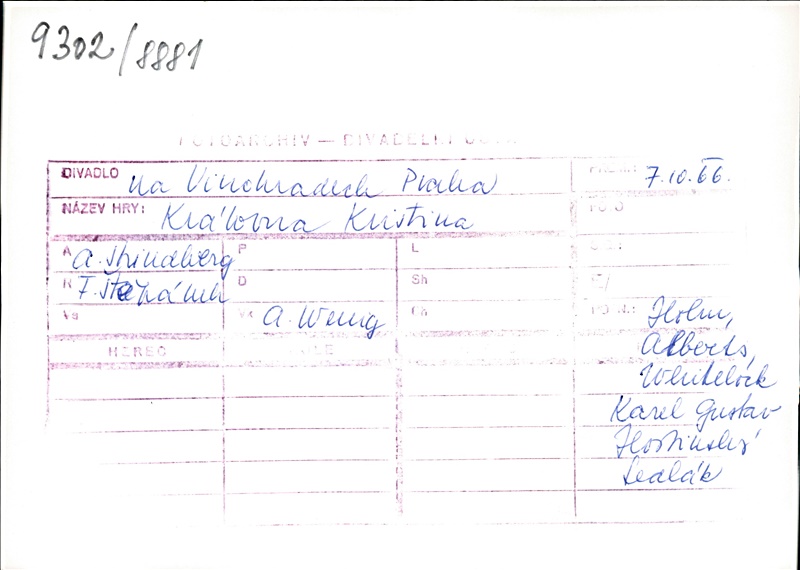 9302/8881
FOTOARCHIV — DIVADELNÍ
DIVADLO na Vinohradech Praha
7.10.66.
NÁZEV HRY: Královna Kristina
A A. Strindberg P L
R F. Štěpánek D Sh
Vs Vk A. Wenig Ch
Holm,
HEREC
Alberts,
Whitelock
Karel Gustav
Hostinský
Sedlák